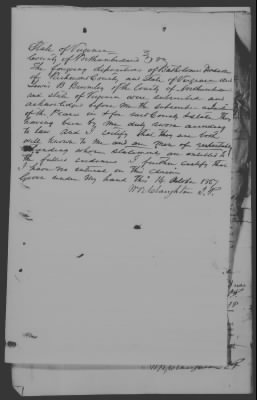 State of Virginia
County of Northumberland
The forgoing depositions of
of Richmond County and State of Virginia and
Lewis B of the County of Northumberland
and State of Virginia were subscribed and
acknowledged before me the subscriber a Justice
of the Peace in & for said County & state they
having been by me duly sworn according
to law and I certify that they are both
well known to me and are men of respectable
standing whose statements are entitled to
the fullest credence I further certify that
I have no interest in this claim
Given under my hand this 14 October 1857
Claughton J. P.
J. P.